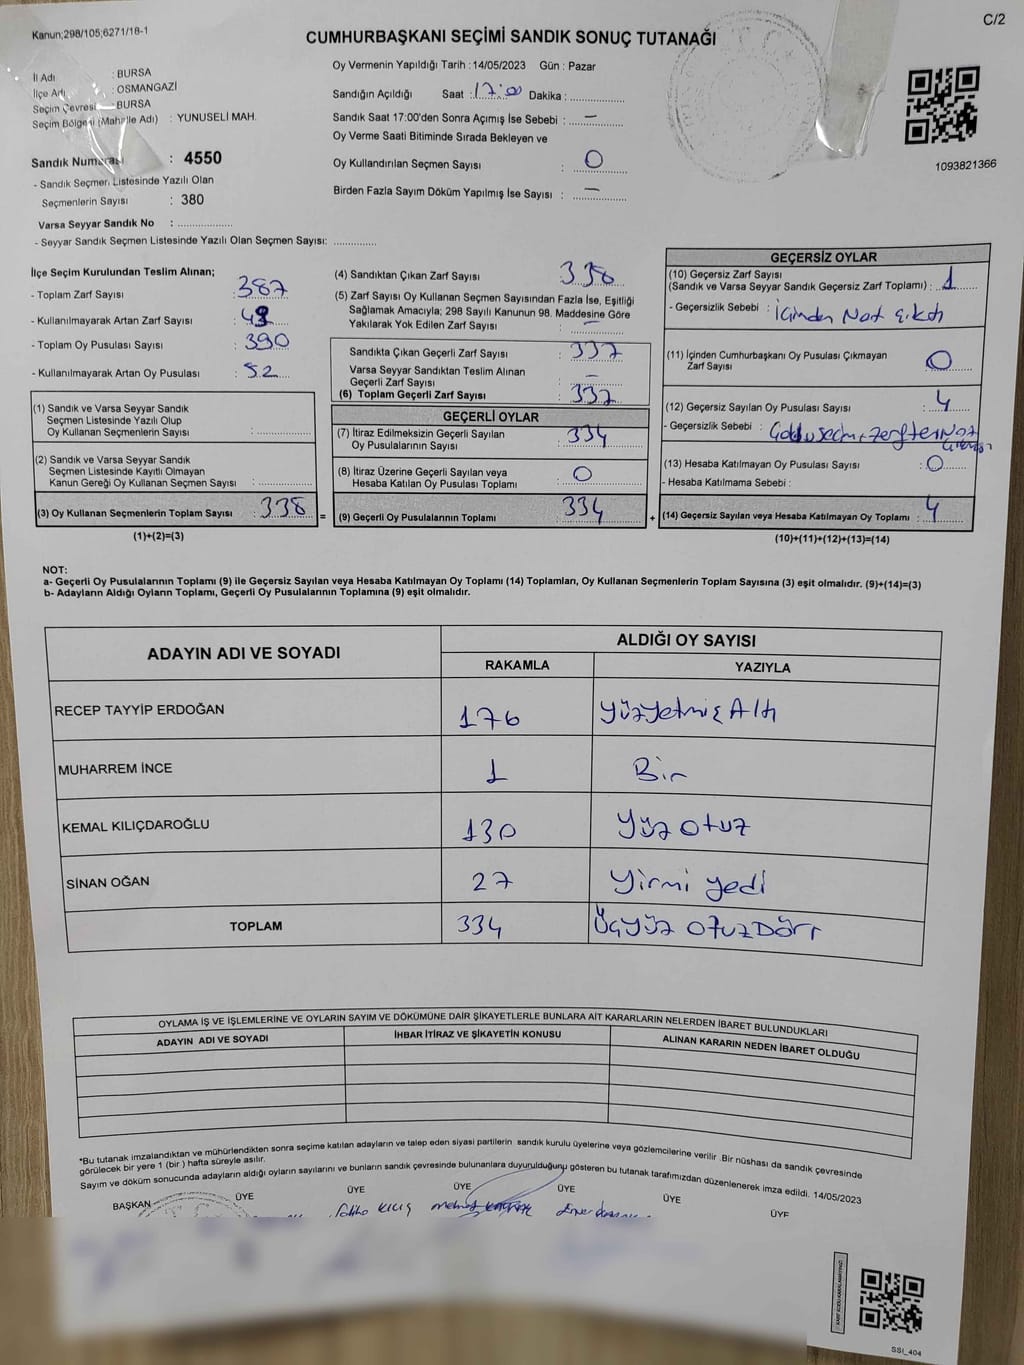 Kanun;298/105;6271/18-1
C/2
CUMHURBAŞKANI SEÇİMİ SANDIK SONUÇ TUTANAĞI
İl Adı : BURSA
İlçe Adı : OSMANGAZİ
Seçim Çevresi : BURSA
Seçim Bölgesi (Mahalle Adı) : YUNUSELİ MAH.
Sandık Numarası : 4550
- Sandık Seçmen Listesinde Yazılı Olan
Seçmenlerin Sayısı : 380
Varsa Seyyar Sandık No : ..................
- Seyyar Sandık Seçmen Listesinde Yazılı Olan Seçmen Sayısı: ..............
Oy Vermenin Yapıldığı Tarih : 14/05/2023 Gün : Pazar
Sandığın Açıldığı Saat : 17:00 Dakika : ..............
Sandık Saat 17:00'den Sonra Açımış İse Sebebi : —
Oy Verme Saati Bitiminde Sırada Bekleyen ve
Oy Kullandırılan Seçmen Sayısı : 0
Birden Fazla Sayım Döküm Yapılmış İse Sayısı : —
1093821366
İlçe Seçim Kurulundan Teslim Alınan;
- Toplam Zarf Sayısı : 387
- Kullanılmayarak Artan Zarf Sayısı :
- Toplam Oy Pusulası Sayısı : 390
- Kullanılmayarak Artan Oy Pusulası : 52
(1) Sandık ve Varsa Seyyar Sandık
Seçmen Listesinde Yazılı Olup
Oy Kullanan Seçmenlerin Sayısı : ..............
(2) Sandık ve Varsa Seyyar Sandık
Seçmen Listesinde Kayıtlı Olmayan
Kanun Gereği Oy Kullanan Seçmen Sayısı : ..............
(3) Oy Kullanan Seçmenlerin Toplam Sayısı : 338 =
(1)+(2)=(3)
(4) Sandıktan Çıkan Zarf Sayısı : 338
(5) Zarf Sayısı Oy Kullanan Seçmen Sayısından Fazla İse, Eşitliği
Sağlamak Amacıyla; 298 Sayılı Kanunun 98. Maddesine Göre
Yakılarak Yok Edilen Zarf Sayısı : —
Sandıkta Çıkan Geçerli Zarf Sayısı : 337
Varsa Seyyar Sandıktan Teslim Alınan
Geçerli Zarf Sayısı : —
(6) Toplam Geçerli Zarf Sayısı : 337
GEÇERLİ OYLAR
(7) İtiraz Edilmeksizin Geçerli Sayılan
Oy Pusulalarının Sayısı : 334
(8) İtiraz Üzerine Geçerli Sayılan veya
Hesaba Katılan Oy Pusulası Toplamı : 0
(9) Geçerli Oy Pusulalarının Toplamı : 334 +
GEÇERSİZ OYLAR
(10) Geçersiz Zarf Sayısı
(Sandık ve Varsa Seyyar Sandık Geçersiz Zarf Toplamı) : 1
- Geçersizlik Sebebi : İçinden Not çıktı
(11) İçinden Cumhurbaşkanı Oy Pusulası Çıkmayan
Zarf Sayısı : 0
(12) Geçersiz Sayılan Oy Pusulası Sayısı : 4
- Geçersizlik Sebebi :
(13) Hesaba Katılmayan Oy Pusulası Sayısı : 0
- Hesaba Katılmama Sebebi :
(14) Geçersiz Sayılan veya Hesaba Katılmayan Oy Toplamı : 4
(10)+(11)+(12)+(13)=(14)
NOT:
a- Geçerli Oy Pusulalarının Toplamı (9) ile Geçersiz Sayılan veya Hesaba Katılmayan Oy Toplamı (14) Toplamları, Oy Kullanan Seçmenlerin Toplam Sayısına (3) eşit olmalıdır. (9)+(14)=(3)
b- Adayların Aldığı Oyların Toplamı, Geçerli Oy Pusulalarının Toplamına (9) eşit olmalıdır.
ADAYIN ADI VE SOYADI ALDIĞI OY SAYISI
RAKAMLA YAZIYLA
RECEP TAYYİP ERDOĞAN 176 Yüzyetmiş Altı
MUHARREM İNCE 1 Bir
KEMAL KILIÇDAROĞLU 130 Yüz otuz
SİNAN OĞAN 27 Yirmi yedi
TOPLAM 334 Üçyüz OtuzDört
OYLAMA İŞ VE İŞLEMLERİNE VE OYLARIN SAYIM VE DÖKÜMÜNE DAİR ŞİKAYETLERLE BUNLARA AİT KARARLARIN NELERDEN İBARET BULUNDUKLARI
ADAYIN ADI VE SOYADI İHBAR İTİRAZ VE ŞİKAYETİN KONUSU ALINAN KARARIN NEDEN İBARET OLDUĞU
*Bu tutanak imzalandıktan ve mühürlendikten sonra seçime katılan adayların ve talep eden siyasi partilerin sandık kurulu üyelerine veya gözlemcilerine verilir .Bir nüshası da sandık çevresinde
görülecek bir yere 1 (bir ) hafta süreyle asılır.
Sayım ve döküm sonucunda adayların aldığı oyların sayılarını ve bunların sandık çevresinde bulunanlara duyurulduğunu gösteren bu tutanak tarafımızdan düzenlenerek imza edildi. 14/05/2023
BAŞKAN ÜYE ÜYE ÜYE ÜYE ÜYE ÜYE
SSİ_404